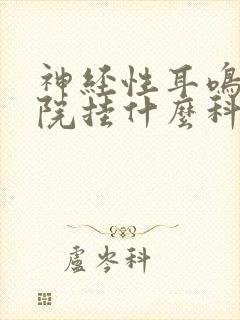 神经性耳鸣
院挂什麼科
盧岑科